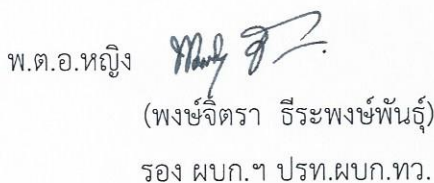 พ.ต.อ.หญิง
(พงษ์จิตรา ธีระพงษ์พันธุ์)
รอง ผบก.ฯ ปรท.ผบก.ทว.